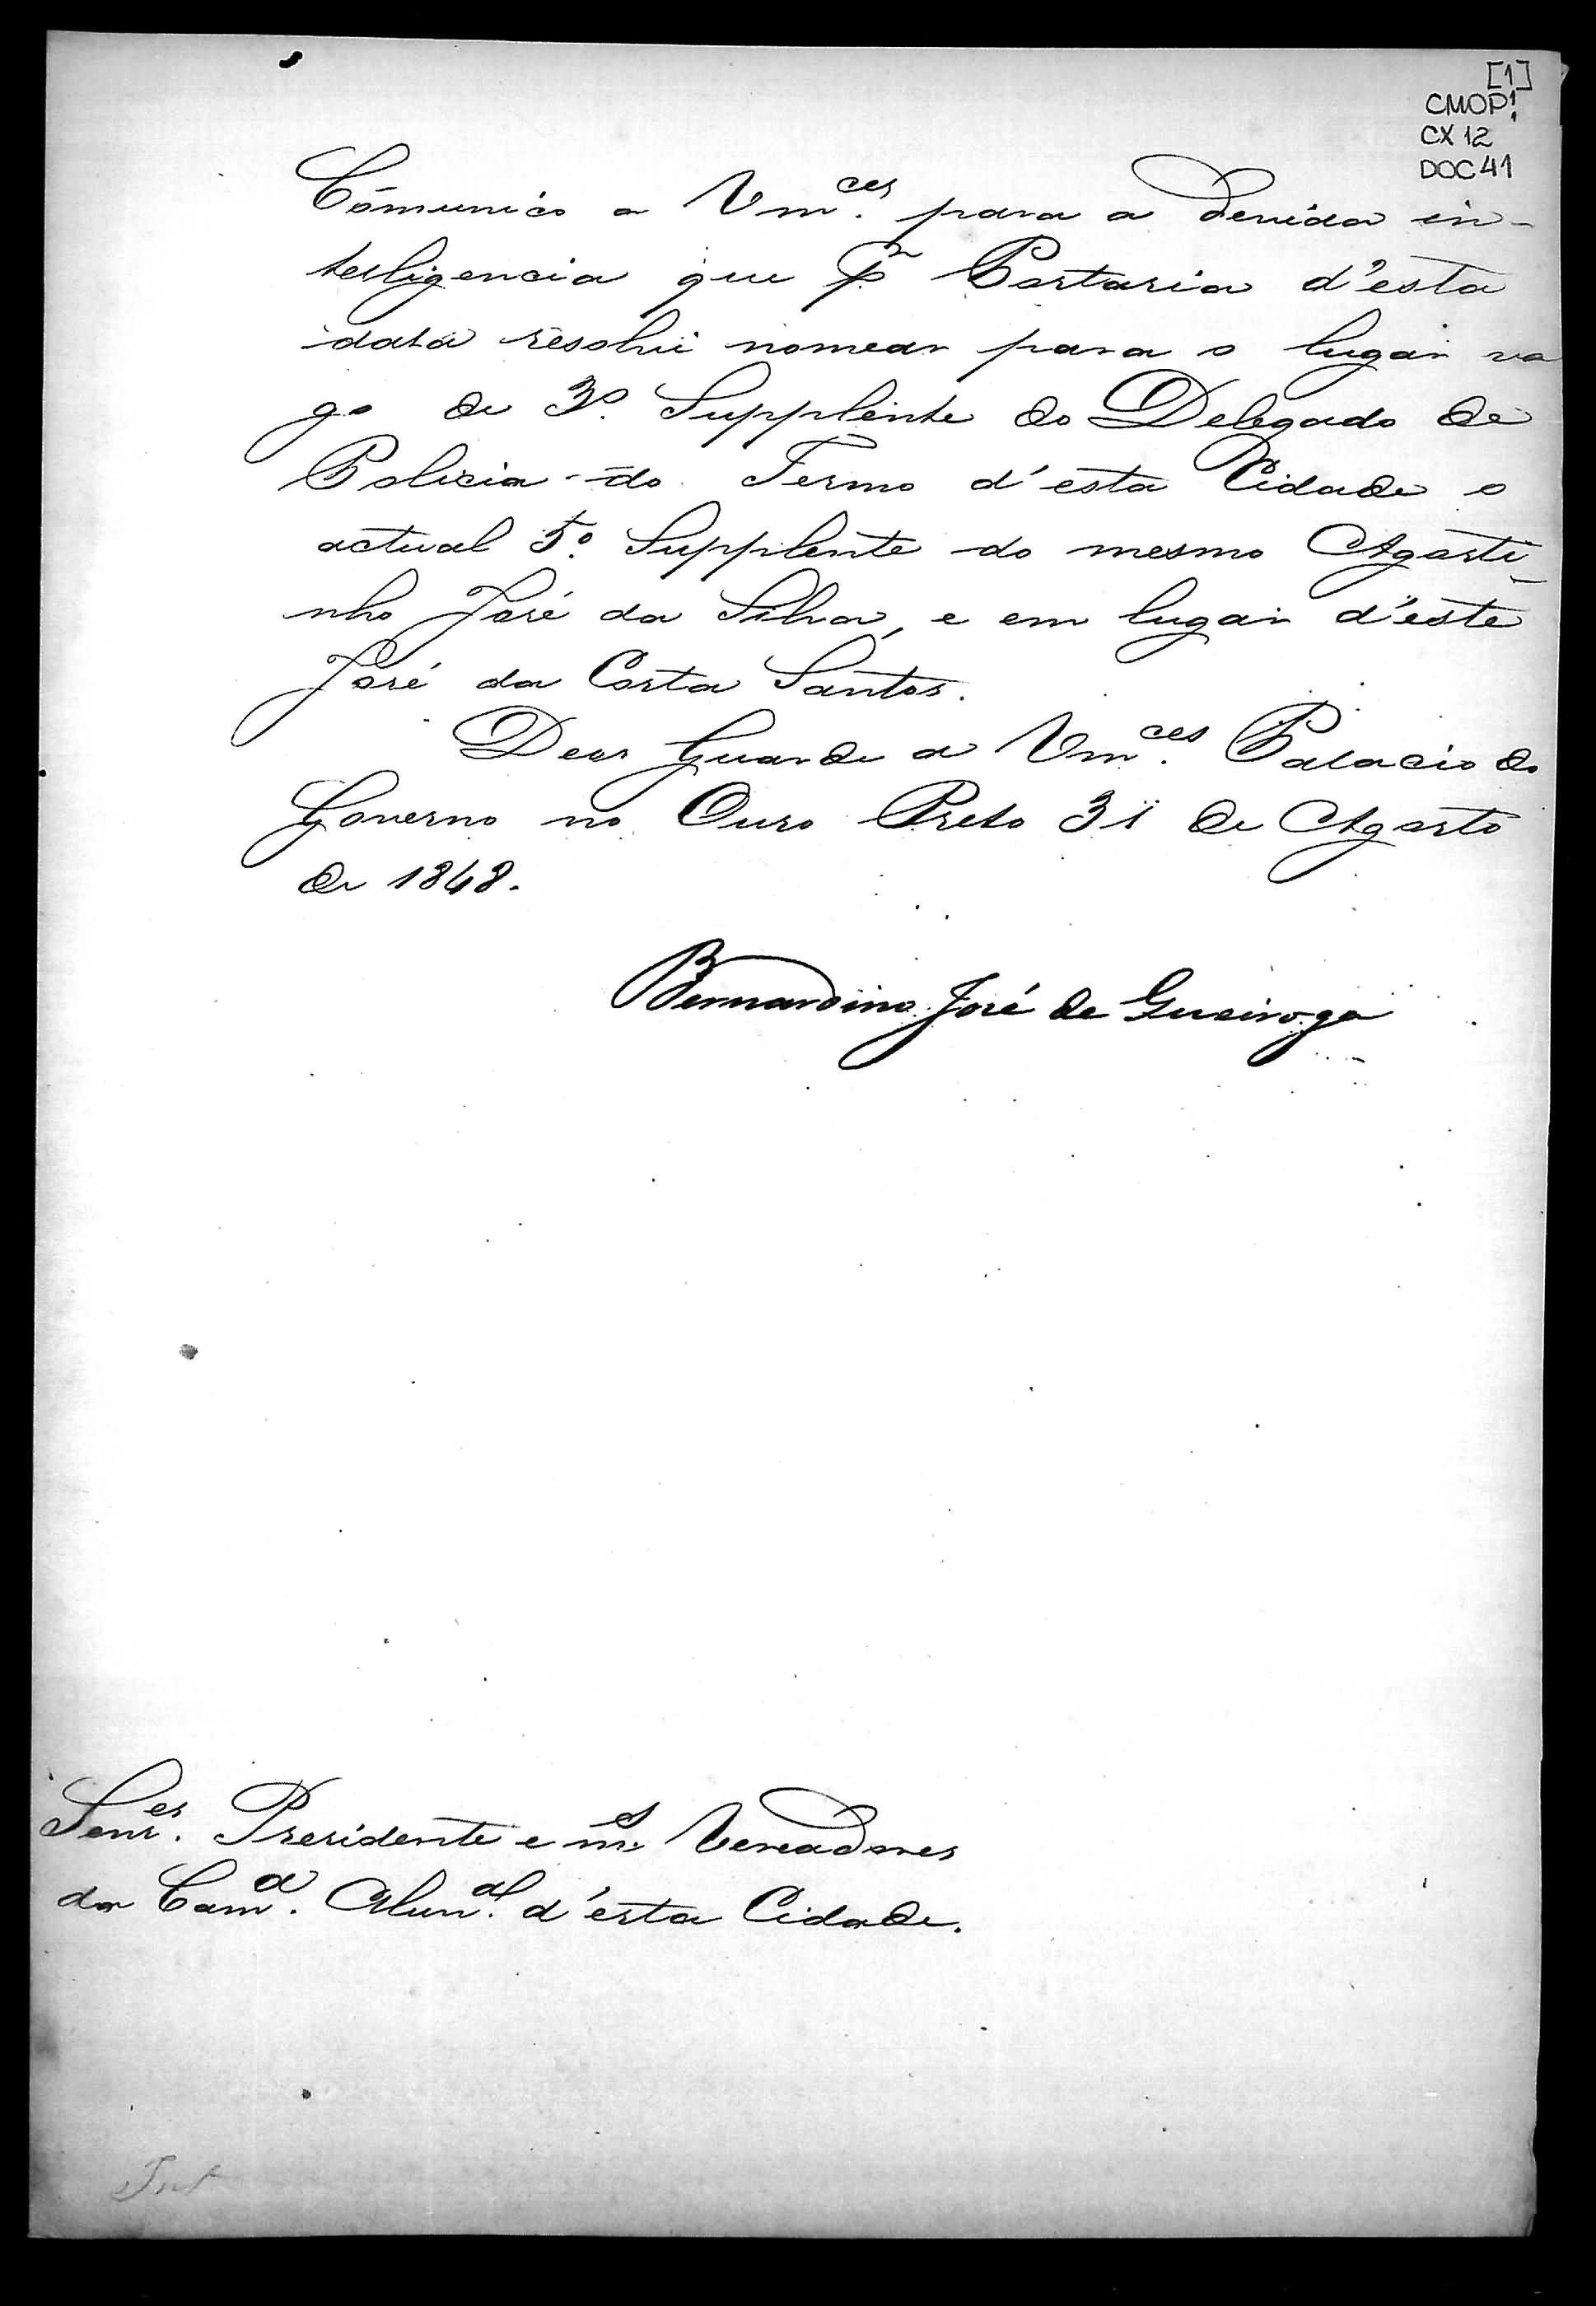 [1]
CMOP1
CX 12
DOC 41
Cõmunico a Vm.ces para a devida in-
telligencia que pr Portaria d'esta
data resolvi nomear para o lugar va
go de 3º Supplente do Delegado de
Policia do Termo d'esta Cidade o
actual 5º Supplente do mesmo Agosti
nho José da Silva, e em lugar d'este
José da Costa Santos.
Deos Guarde a Vm.ces Palacio do
Governo no Ouro Preto 31 de Agosto
de 1848.
Bernardino José de Queiroga
Senr.es Presidente e m.s Vereadores
da Cam.a Mun.al d'esta Cidade.